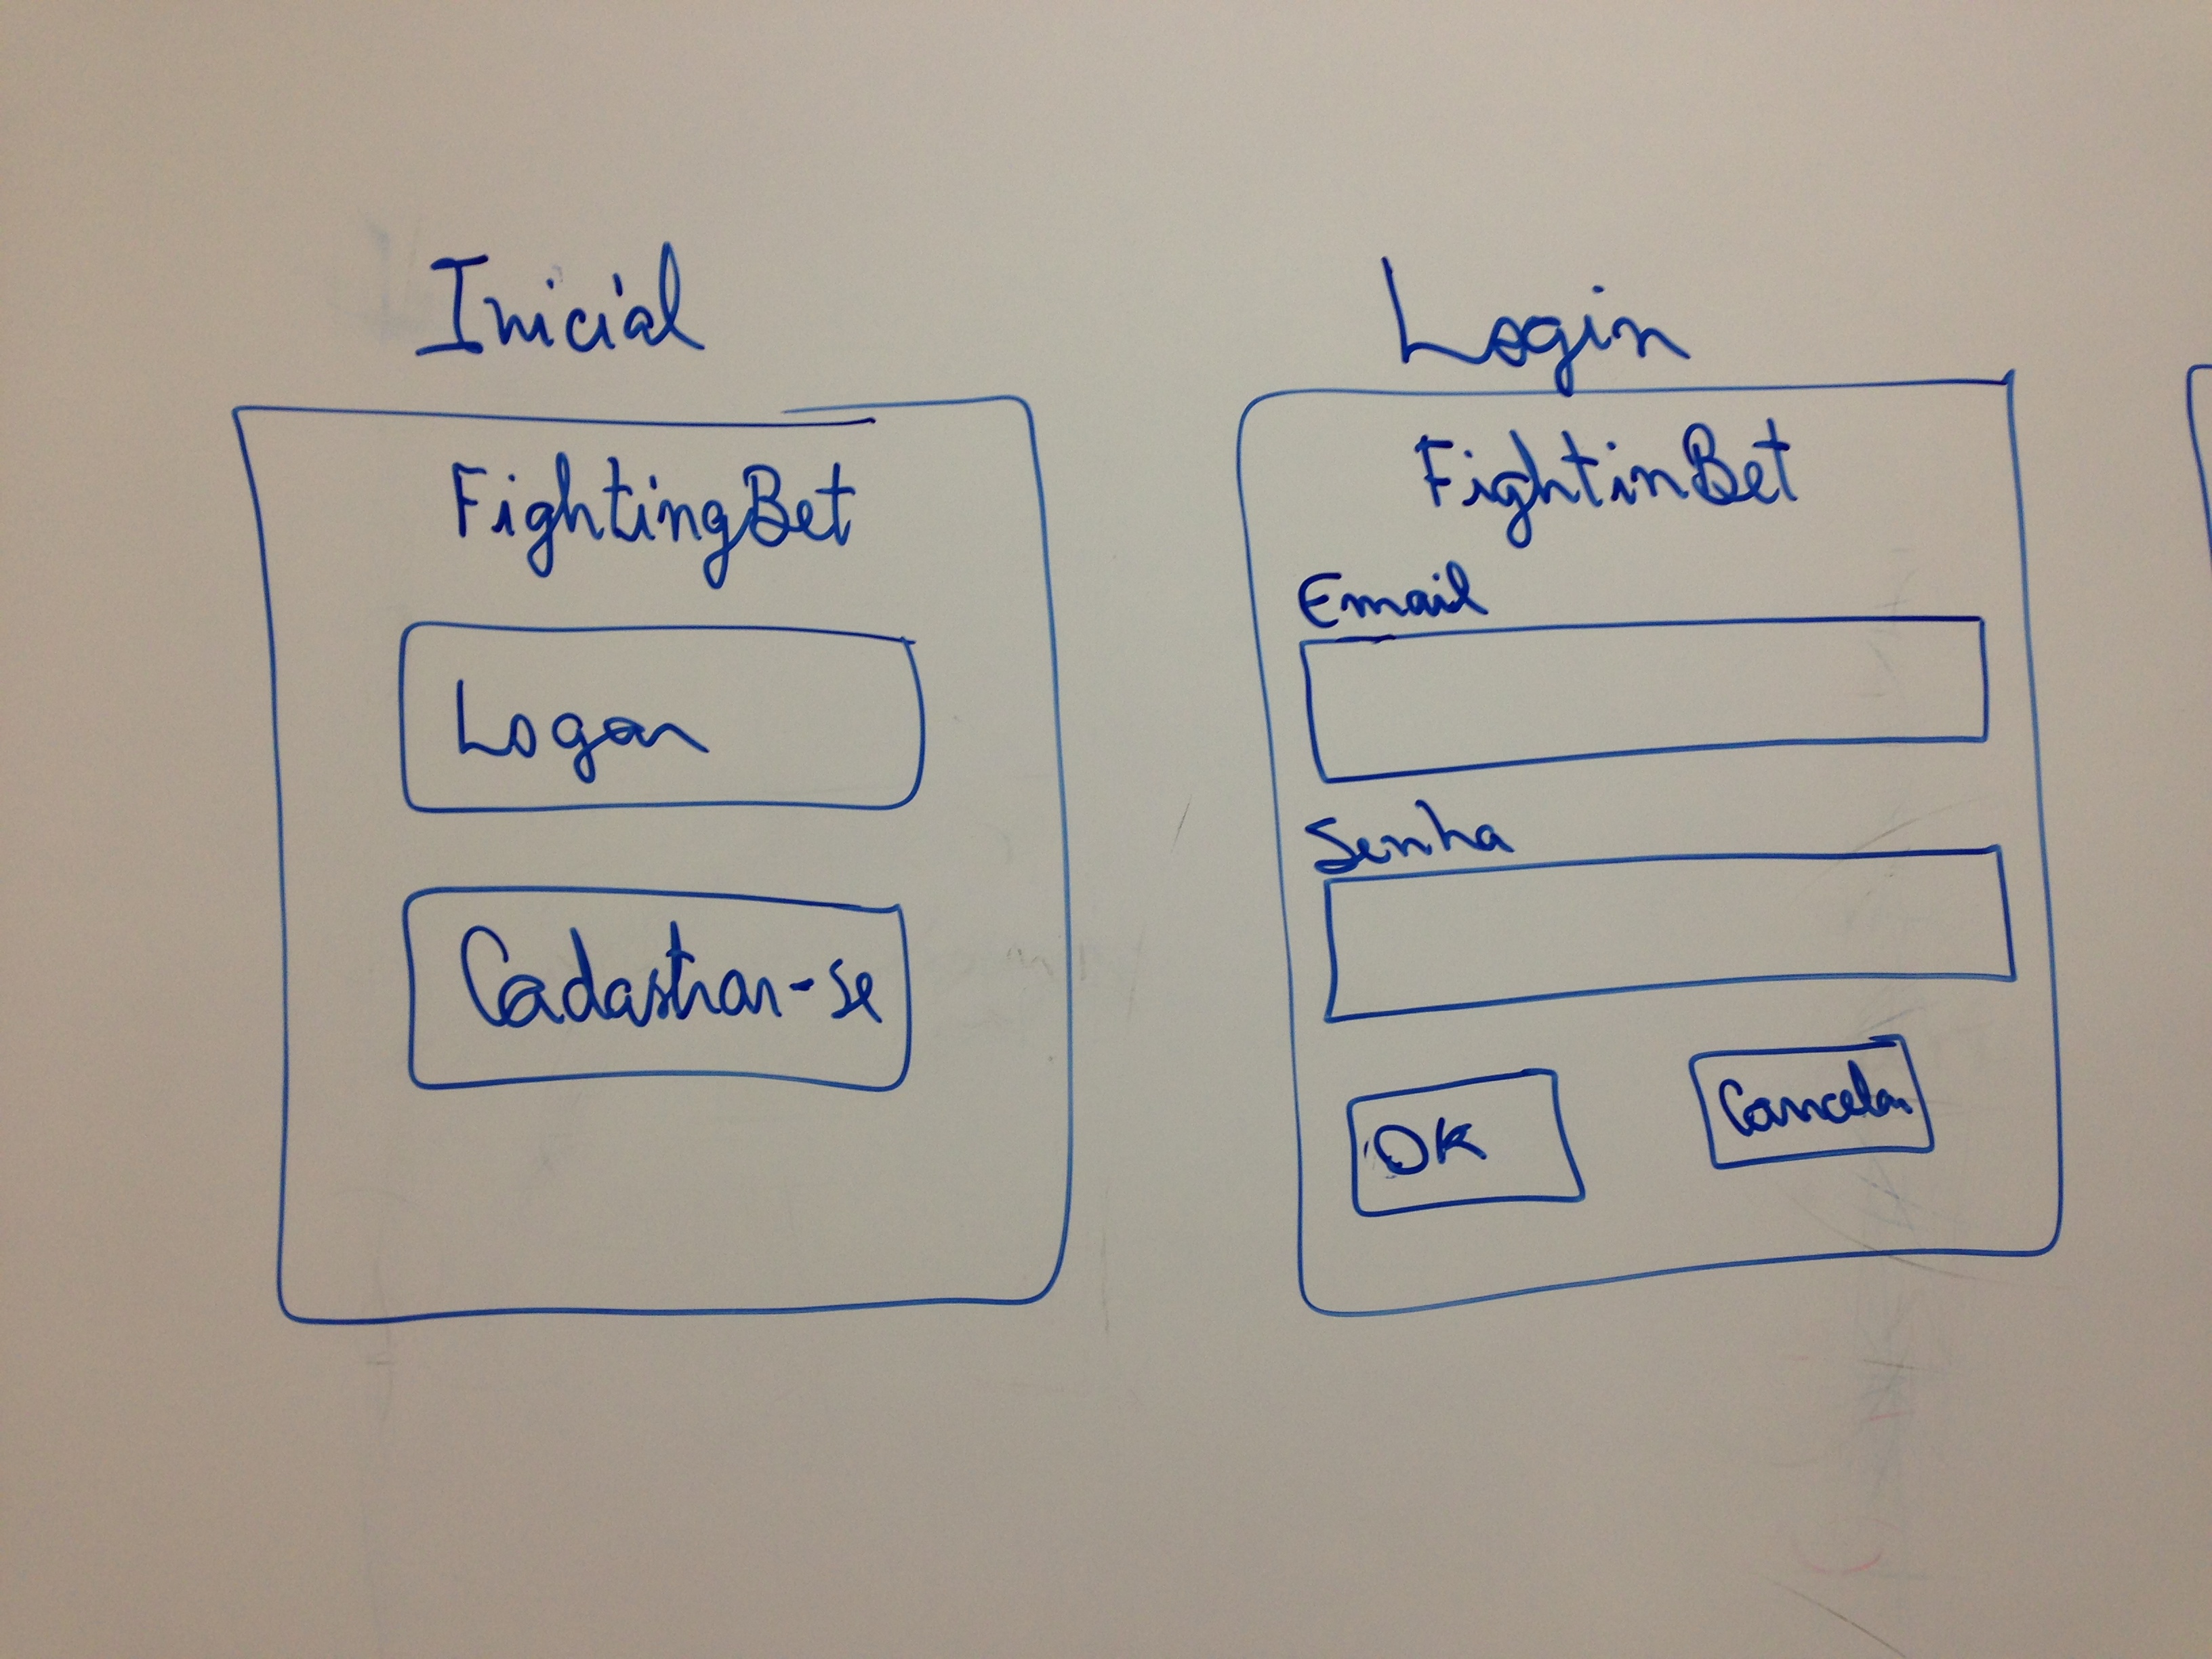 Inicial
FightingBet
Logar
Cadastrar-se
Login
FightinBet
Email
Senha
OK
Cancelar